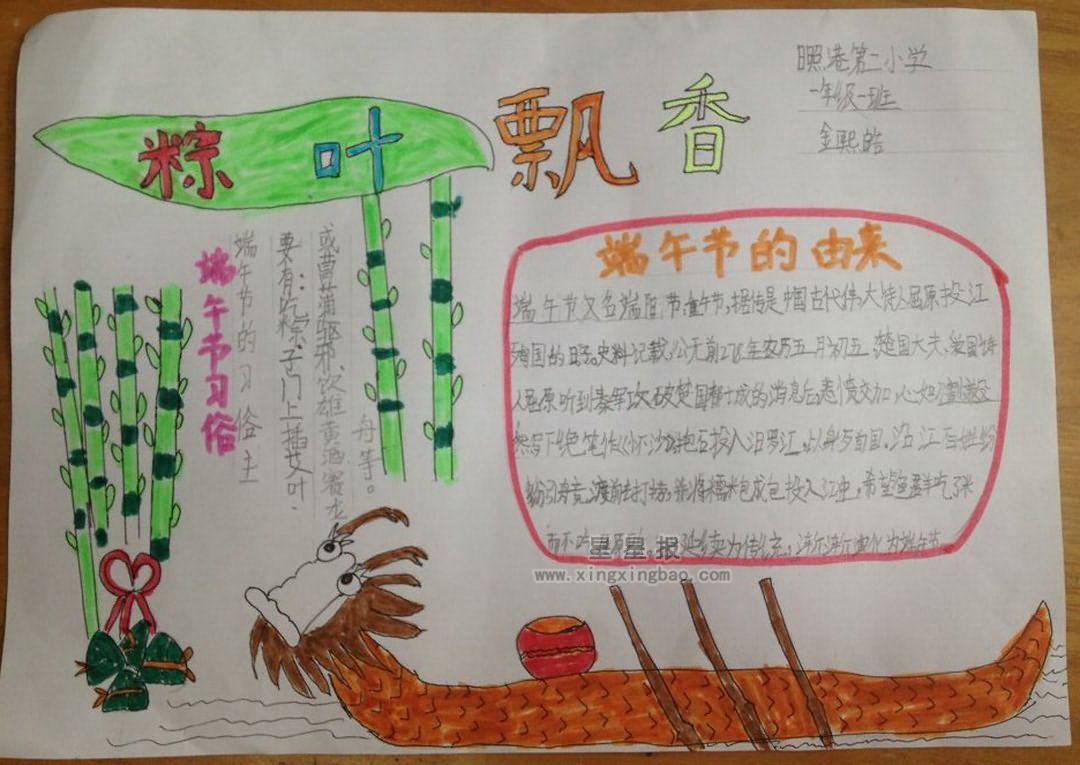 日照港第二小学
一年级一班
金熙皓
粽叶飘香
端午节的由来
端午节又名端阳节,重午节,据传是中国古代伟大诗人屈原投江
殉国的日子。史料记载,公元前278年农历五月初五,楚国大夫、爱国诗
人屈原听到秦军攻破楚国都城的消息后悲愤交加,心如刀割,毅
然写下绝笔作《怀沙》抱石投入汨罗江,以身与国,沿江百姓纷
纷引舟竞渡前去打捞,并将糯米包成包投入江中,希望鱼群吃了米
而不吃屈原 延续为传统,渐渐演化为端午节
端午节习俗
端午节的习俗主
要有:吃粽子门上插艾叶,
或菖蒲驱邪、饮雄黄酒赛龙
舟等。
星星报
www.xingxingbao.com